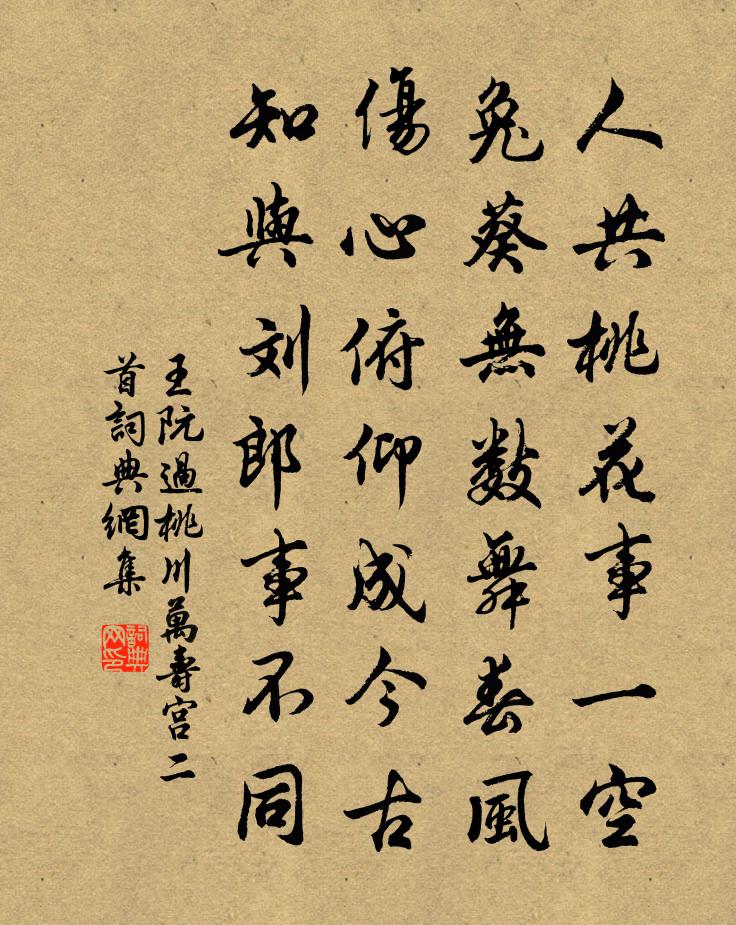 人共桃花事一空
兔葵無数舞春風
傷心俯仰成今古
知與刘郎事不同
王阮過桃川萬壽宫二
首詞典網集
詞典
网印